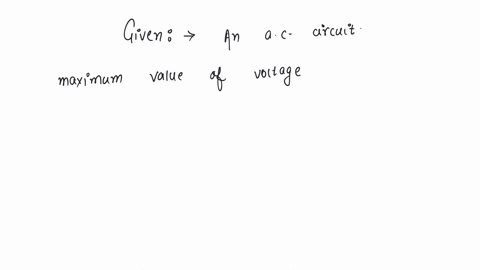 Given: → An a.c. circuit.
maximum value of voltage